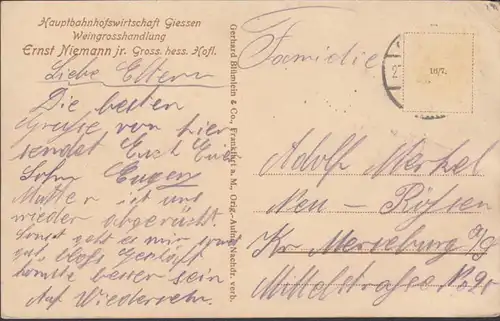 Hauptbahnhofswirtschaft Giessen
Weingrosshandlung
Ernst Niemann jr. Gross. hess. Hofl.
Liebe Eltern
Die besten
Grüße von hier
sendet Euch Euer
Sohn Eugen
Mutter ist uns
wieder abgerückt.
Sonst geht es mir
gut, bloß
könnte besser sein
Auf Wiedersehn.
Gerhard Blümlein & Co., Frankfurt a. M., Orig.-Aufn. Nachdr. verb.
16/7.
Adolf Merkel
Neu - Rössen
Kr Merseburg a/S
Mittelstraße No